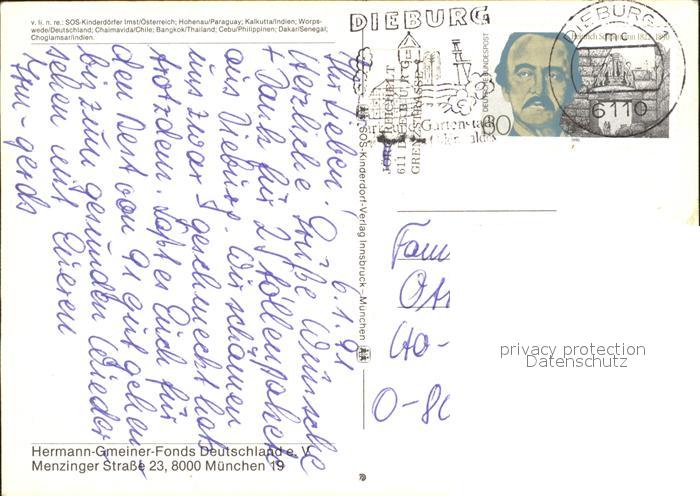 v. li. n. re.: SOS-Kinderdörfer Imst/Österreich; Hohenau/Paraguay; Kalkutta/Indien; Worps-
wede/Deutschland; Chaimavida/Chile; Bangkok/Thailand; Cebu/Philippinen; Dakar/Senegal;
Choglamsar/Indien.
6.1.91
Ihr Lieben!
Herzliche Grüße, Wünsche
+ Dank für 2
aus Dieburg. Wir schämen
uns zwar geschmeckt hat's
trotzdem. Laßt es Euch für
den Rest von 91 gut gehen
bis zum gesunden Wieder-
sehen mit Eueren
Hermann-Gmeiner-Fonds Deutschland e. V.
Menzinger Straße 23, 8000 München 19
SOS-Kinderdorf-Verlag Innsbruck – München
DIEBURG
GRENZSTRASSE
DEUTSCHE BUNDESPOST
Heinrich Schliemann 1822-1890
DIEBURG
mc
6110
Fam
Ott
O-80
privacy protection
Datenschutz